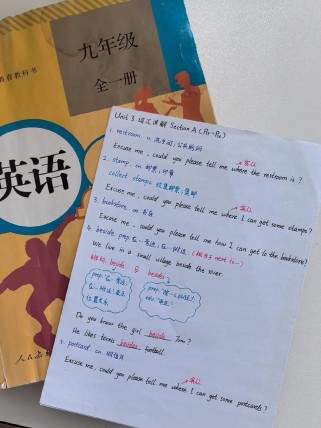 教育教科书
九年级
全一册
英语
人民教
Unit 3 词汇讲解 Section A (P17-P18)
1. restroom n. 洗手间; 公共厕所
Excuse me, could you please tell me where the restroom is?
2. stamp n. 邮票; 印章
collect stamps 收集邮票; 集邮
Excuse me, could you please tell me where I can get some stamps?
3. bookstore n. 书店
Excuse me, could you please tell me how I can get to the bookstore?
4. beside prep. 在…旁边; 在…附近 (相当于 next to~)
We live in a small village beside the river.
辨析 beside & besides
prep. 在…旁边;
在…附近 表示
位置关系
prep. 除…以外(还)
adv. 而且
Do you know the girl beside Tom?
He likes tennis besides football.
5. postcard n. 明信片
Excuse me, could you please tell me where I can get some postcards?